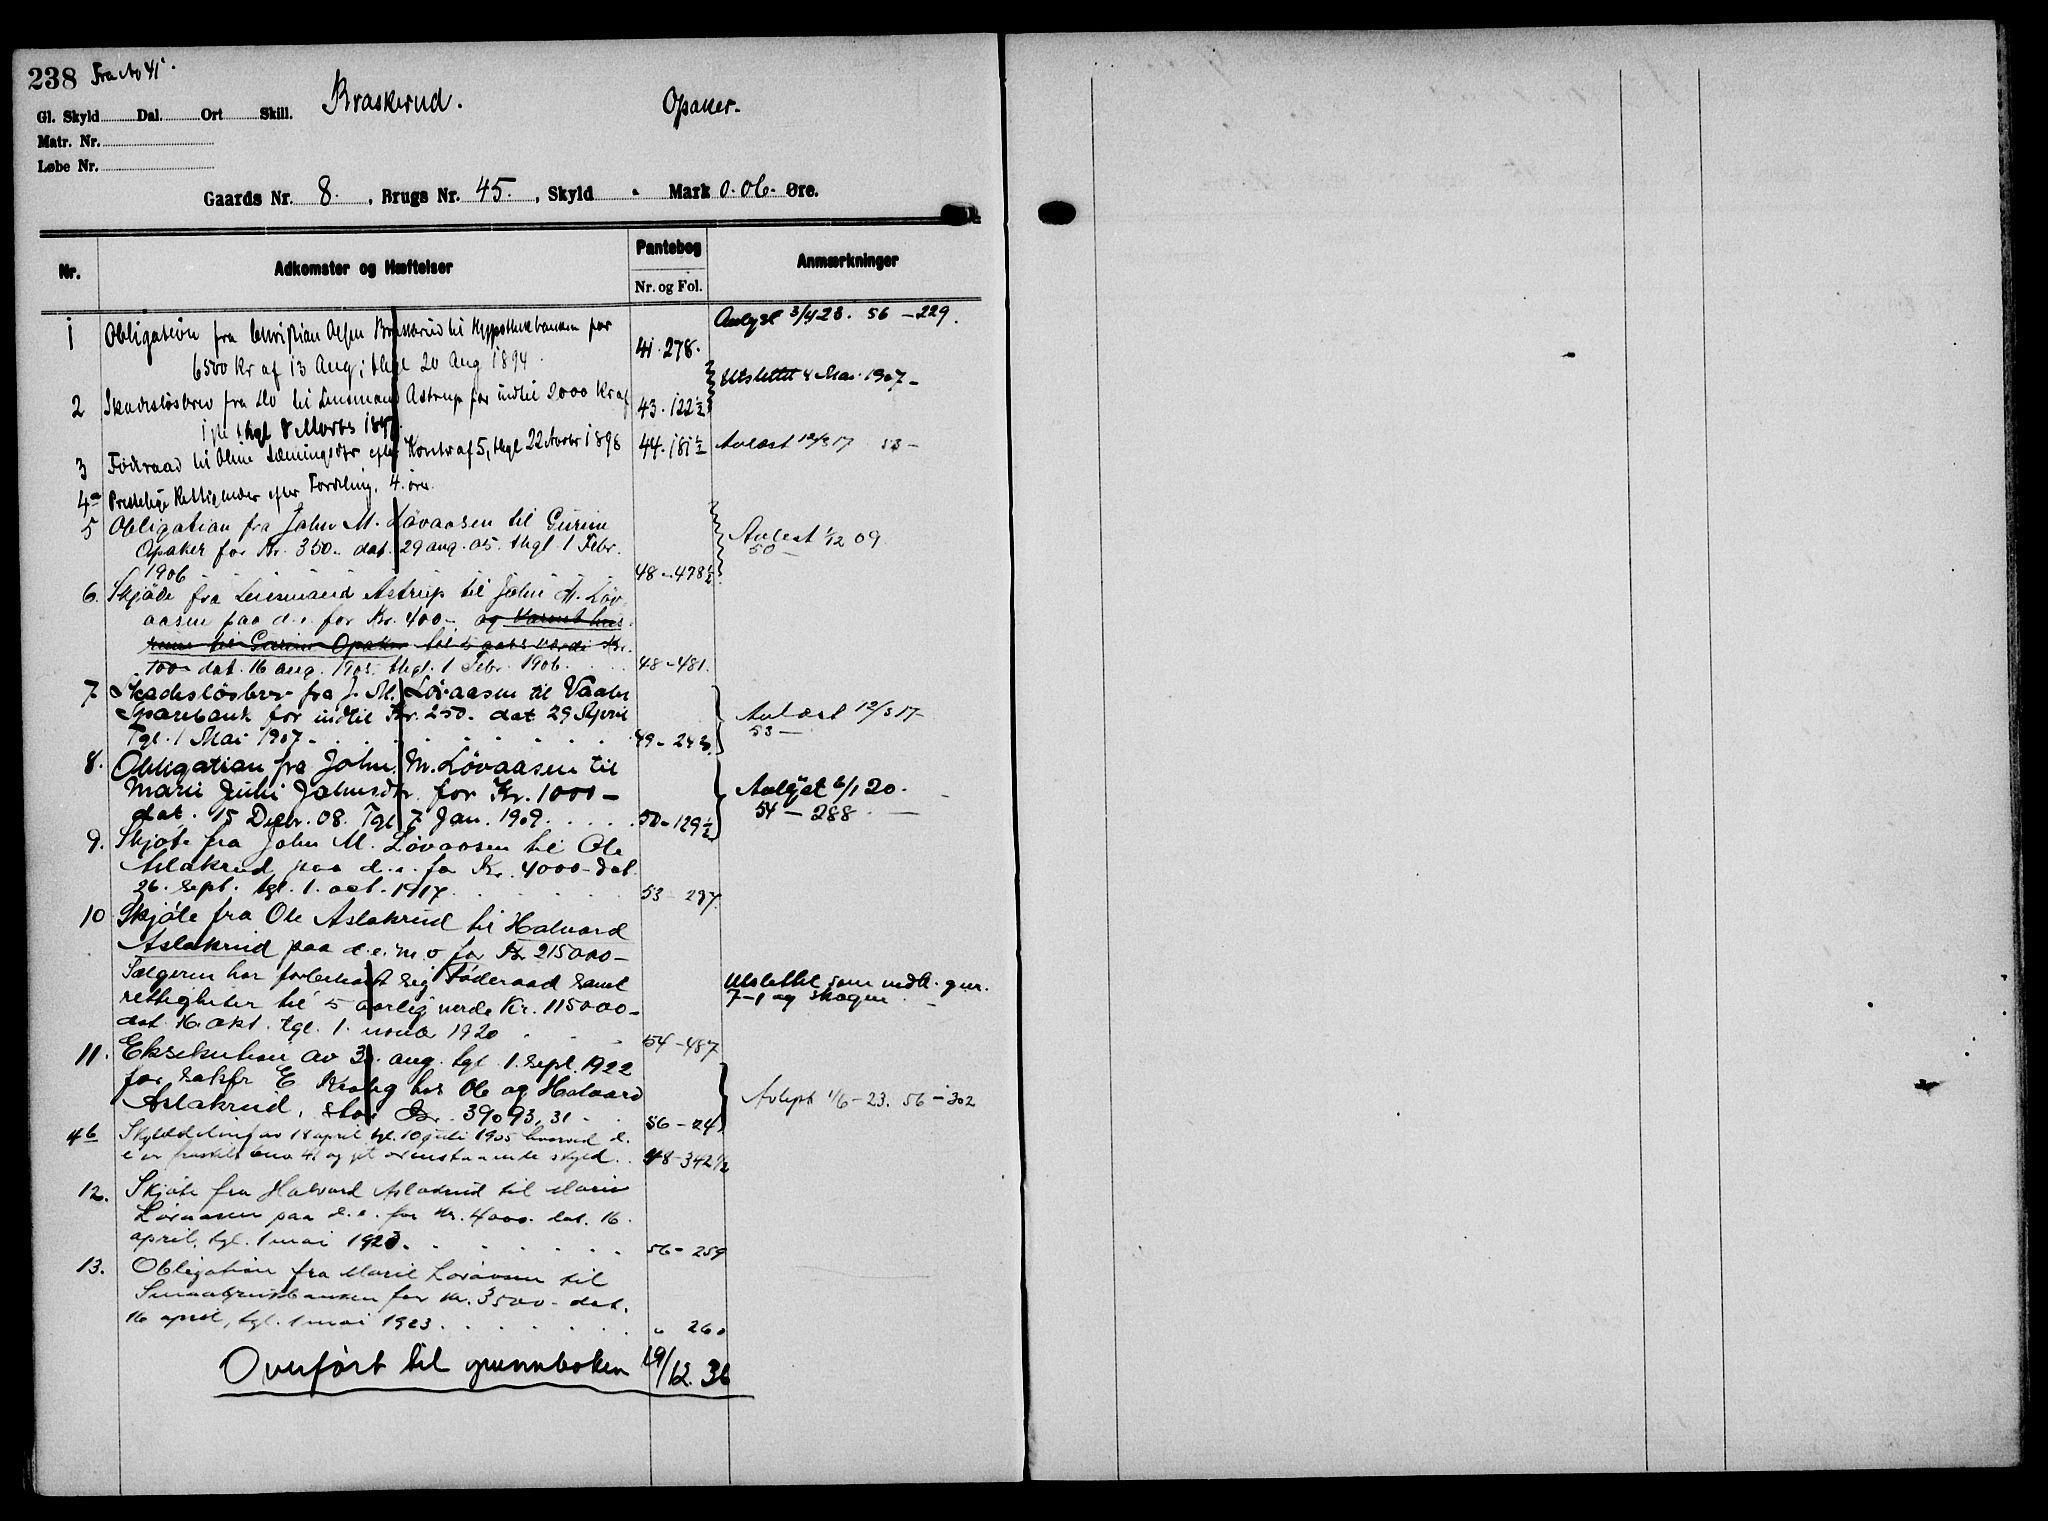 238 Fra No 41.
Braskerud. Opaker.
Gl. Skyld Dal. Ort Skill.
Matr. Nr.
Løbe Nr.
Gaards Nr. 8. , Brugs Nr. 45. , Skyld Mark 0.06. Øre.
Nr. Adkomster og Hæftelser Pantebog Anmærkninger
Nr. og Fol.
1 Obligation fra Christian Olsen Braskerud til Hypothekbanken for 3/4 23. 56 – 229.
6500 Kr af 13 Aug; thgl 20 Aug 1894. 41.278.
2 Skadesløsbrev fra do til Lensmand Astrup for indtil 2000 Kr af 43.122½ Utslettet 4 Mai 1907 –
thgl 8 Marts
3 Føderaad til Oline efter Kontr af 5, thgl 22 Novbr 1898 44.181½ Avlæst 12/3 17 53 –
4a Prestelige Rettigheder efter Fordeling. 4 øre
5 Obligation fra John M. Løvaasen til Gurine
Opaker for Kr. 350.. dat. 29 aug. 05. thgl. 1 Febr.
1906 48 – 478½ Avlæst 1/12 09
50 –
6. Skjøde fra Lensmand Astrup til John M. Løv-
aasen paa d. e. for Kr. 400 –. og Varmt hus
rum til Gurine Opaker til 5 aars værdi Kr.
100 dat. 16 aug. 1905. thgl. 1 Febr. 1906. 48 – 481.
7. Skadesløsbrev fra J. M. Løvaasen til Vaaler
Sparebank for indtil Kr. 250.– dat 29 April
Tgl. 1 Mai 1907 – 49 – 243. Avlæst 12/3 17 –
53 –
8. Obligation fra John M. Løvaasen til
Marie Julie Johnsdtr for Kr. 1000 –
dat. 15 Decbr. 08. Tgl 7 Jan. 1909. 50 – 129½ Avlyst 6/1 20.
54 – 288 –
9. Skjøte fra John M. Løvaasen til Ole
Aslakrud paa d. e. for Kr. 4000 – dat.
26. sept. tgl. 1. oct. 1917. 53 – 237.
10 Skjøte fra Ole Aslakrud til Halvard
Aslakrud paa d. e. m. o for Kr 215000 –
Sælgeren har forbeholdt sig føderaad samt
rettigheter til 5 aarlig verde Kr. 115000 –
dat. 16. okt. tgl. 1. novbr 1920 54 – 487 Utslettet som vedk. gnr.
7–1 og skogen –
11. Eksekution av 30. aug. tgl 1. sept. 1922
for sakfr E hos Ole og Halvard
Aslakrud, stor Kr. 39093,31 56 – 24 Avlyst 1/6 – 23. 56 – 302
4b Skylddeling av 18 april tgl. 10 juli 1905 hvorved d.
e er fraskilt bno 41 og git ovenstaaende skyld. 48 – 342½
12. Skjøte fra Halvard Aslakrud til Marie
Løvaasen paa d. e. for Kr. 4000. dat. 16
april, tgl. 1 mai 1923. 56 – 259
13. Obligation fra Marie Løvaasen til
Smaabruksbanken for Kr. 3500 – dat.
16 april, tgl. 1 mai 1923. " 260
Overført til grunnboken 19/12. 36